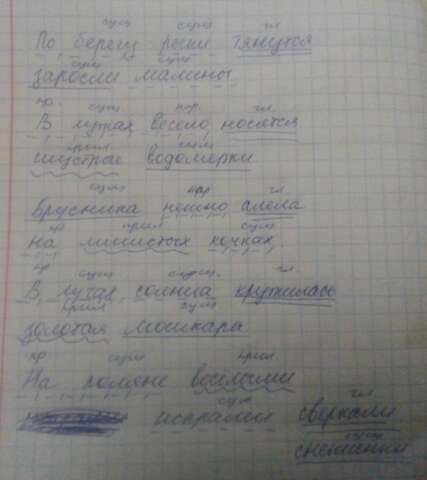 сущ сущ гл
По берегу речки тянутся
сущ сущ
заросли малины
пр. сущ нар. гл
В лужах весело носятся
прил сущ
шустрые водомерки
сущ нар гл
Брусника нежно алела
пр прил сущ
на мшистых кочках.
пр сущ сущ. гл
В лучах солнца кружилась
прил сущ
золотая мошкара
пр сущ прил
На поляне весёлыми
сущ гл
искрами сверкали
сущ
снежинки